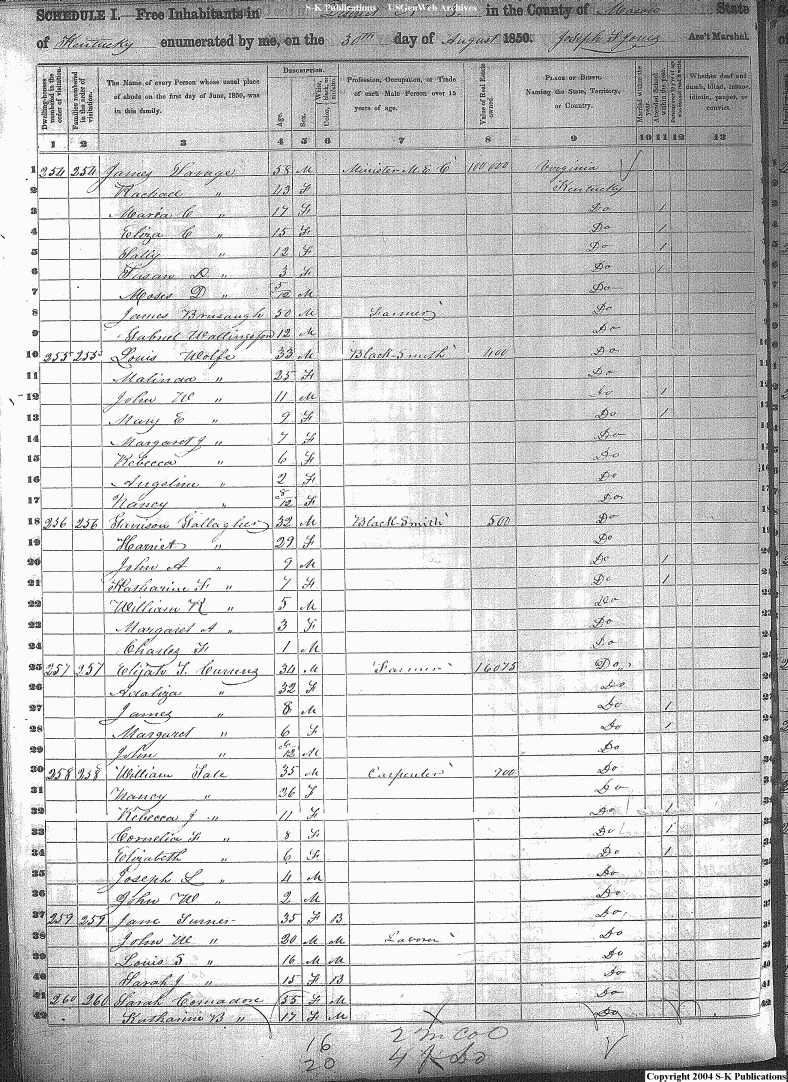 S-K Publications - USGenWeb Archives
SCHEDULE I. Free Inhabitants in in the County of Mason State
of Kentucky enumerated by me, on the 30th day of August 1850. Joseph Ass't Marshal.
Dwelling-houses numbered in the order of visitation.
Families numbered in the order of visitation.
The Name of every Person whose usual place of abode on the first day of June, 1850, was in this family.
DESCRIPTION.
Age.
Sex.
White, black, or mulatto.
Color
Profession, Occupation, or Trade of each Male Person over 15 years of age.
Value of Real Estate owned
PLACE OF BIRTH.
Naming the State, Territory, or Country.
Married within the year.
Attended School within the year.
Whether deaf and dumb, blind, insane, idiotic, pauper, or convict.
1 2 3 4 5 6 7 8 9 10 11 12 13
1 254 254 James Savage 58 M Minister M. E. C 100 000 Virginia
2 Rachael " 43 F Kentucky
3 Maria C " 17 F Do 1
4 Eliza C " 15 F Do 1
5 Sally " 12 F Do 1
6 Susan D " 3 F Do 1
7 Moses D " 5/12 M Do
8 James 50 M Farmer Do
9 Gabriel Wallingsford 12 M Do
10 255 255 Louis Wolfe 33 M Black-Smith 400 Do
11 Malinda " 25 F Do
12 John W " 11 M Do 1
13 Mary E " 9 F Do 1
14 Margaret J " 7 F Do
15 Rebecca " 6 F Do
16 Angeline " 2 F Do
17 Nancy " 8/12 F Do
18 256 256 Harrison Gallagher 32 M Black-Smith 500 Do
19 Harriet " 29 F Do
20 John A " 9 M Do 1
21 Katharine F " 7 F Do 1
22 William R " 5 M Do
23 Margaret A " 3 F Do
24 Charles F 1 M Do
25 257 257 Elijah T. Currens 34 M Farmer 16075 Do
26 Adaliza " 32 F Do
27 James " 8 M Do 1
28 Margaret " 6 F Do 1
29 John " 6/12 M Do
30 258 258 William Tate 35 M Carpenter 700 Do
31 Nancy " 36 F Do
32 Rebecca J " 11 F Do 1
33 Cornelia F " 8 F Do 1
34 Elizabeth " 6 F Do 1
35 Joseph L " 4 M Do
36 John W " 2 M Do
37 259 259 Jane Turner 35 F B Do
38 John W " 20 M M Laborer Do
39 Louis S " 16 M M Do
40 Sarah J " 15 F B Do
41 260 260 Sarah 55 F M Do
42 Katharine B " 17 F M Do
16 2 m col
20 4 F Do
Copyright 2004 S-K Publications